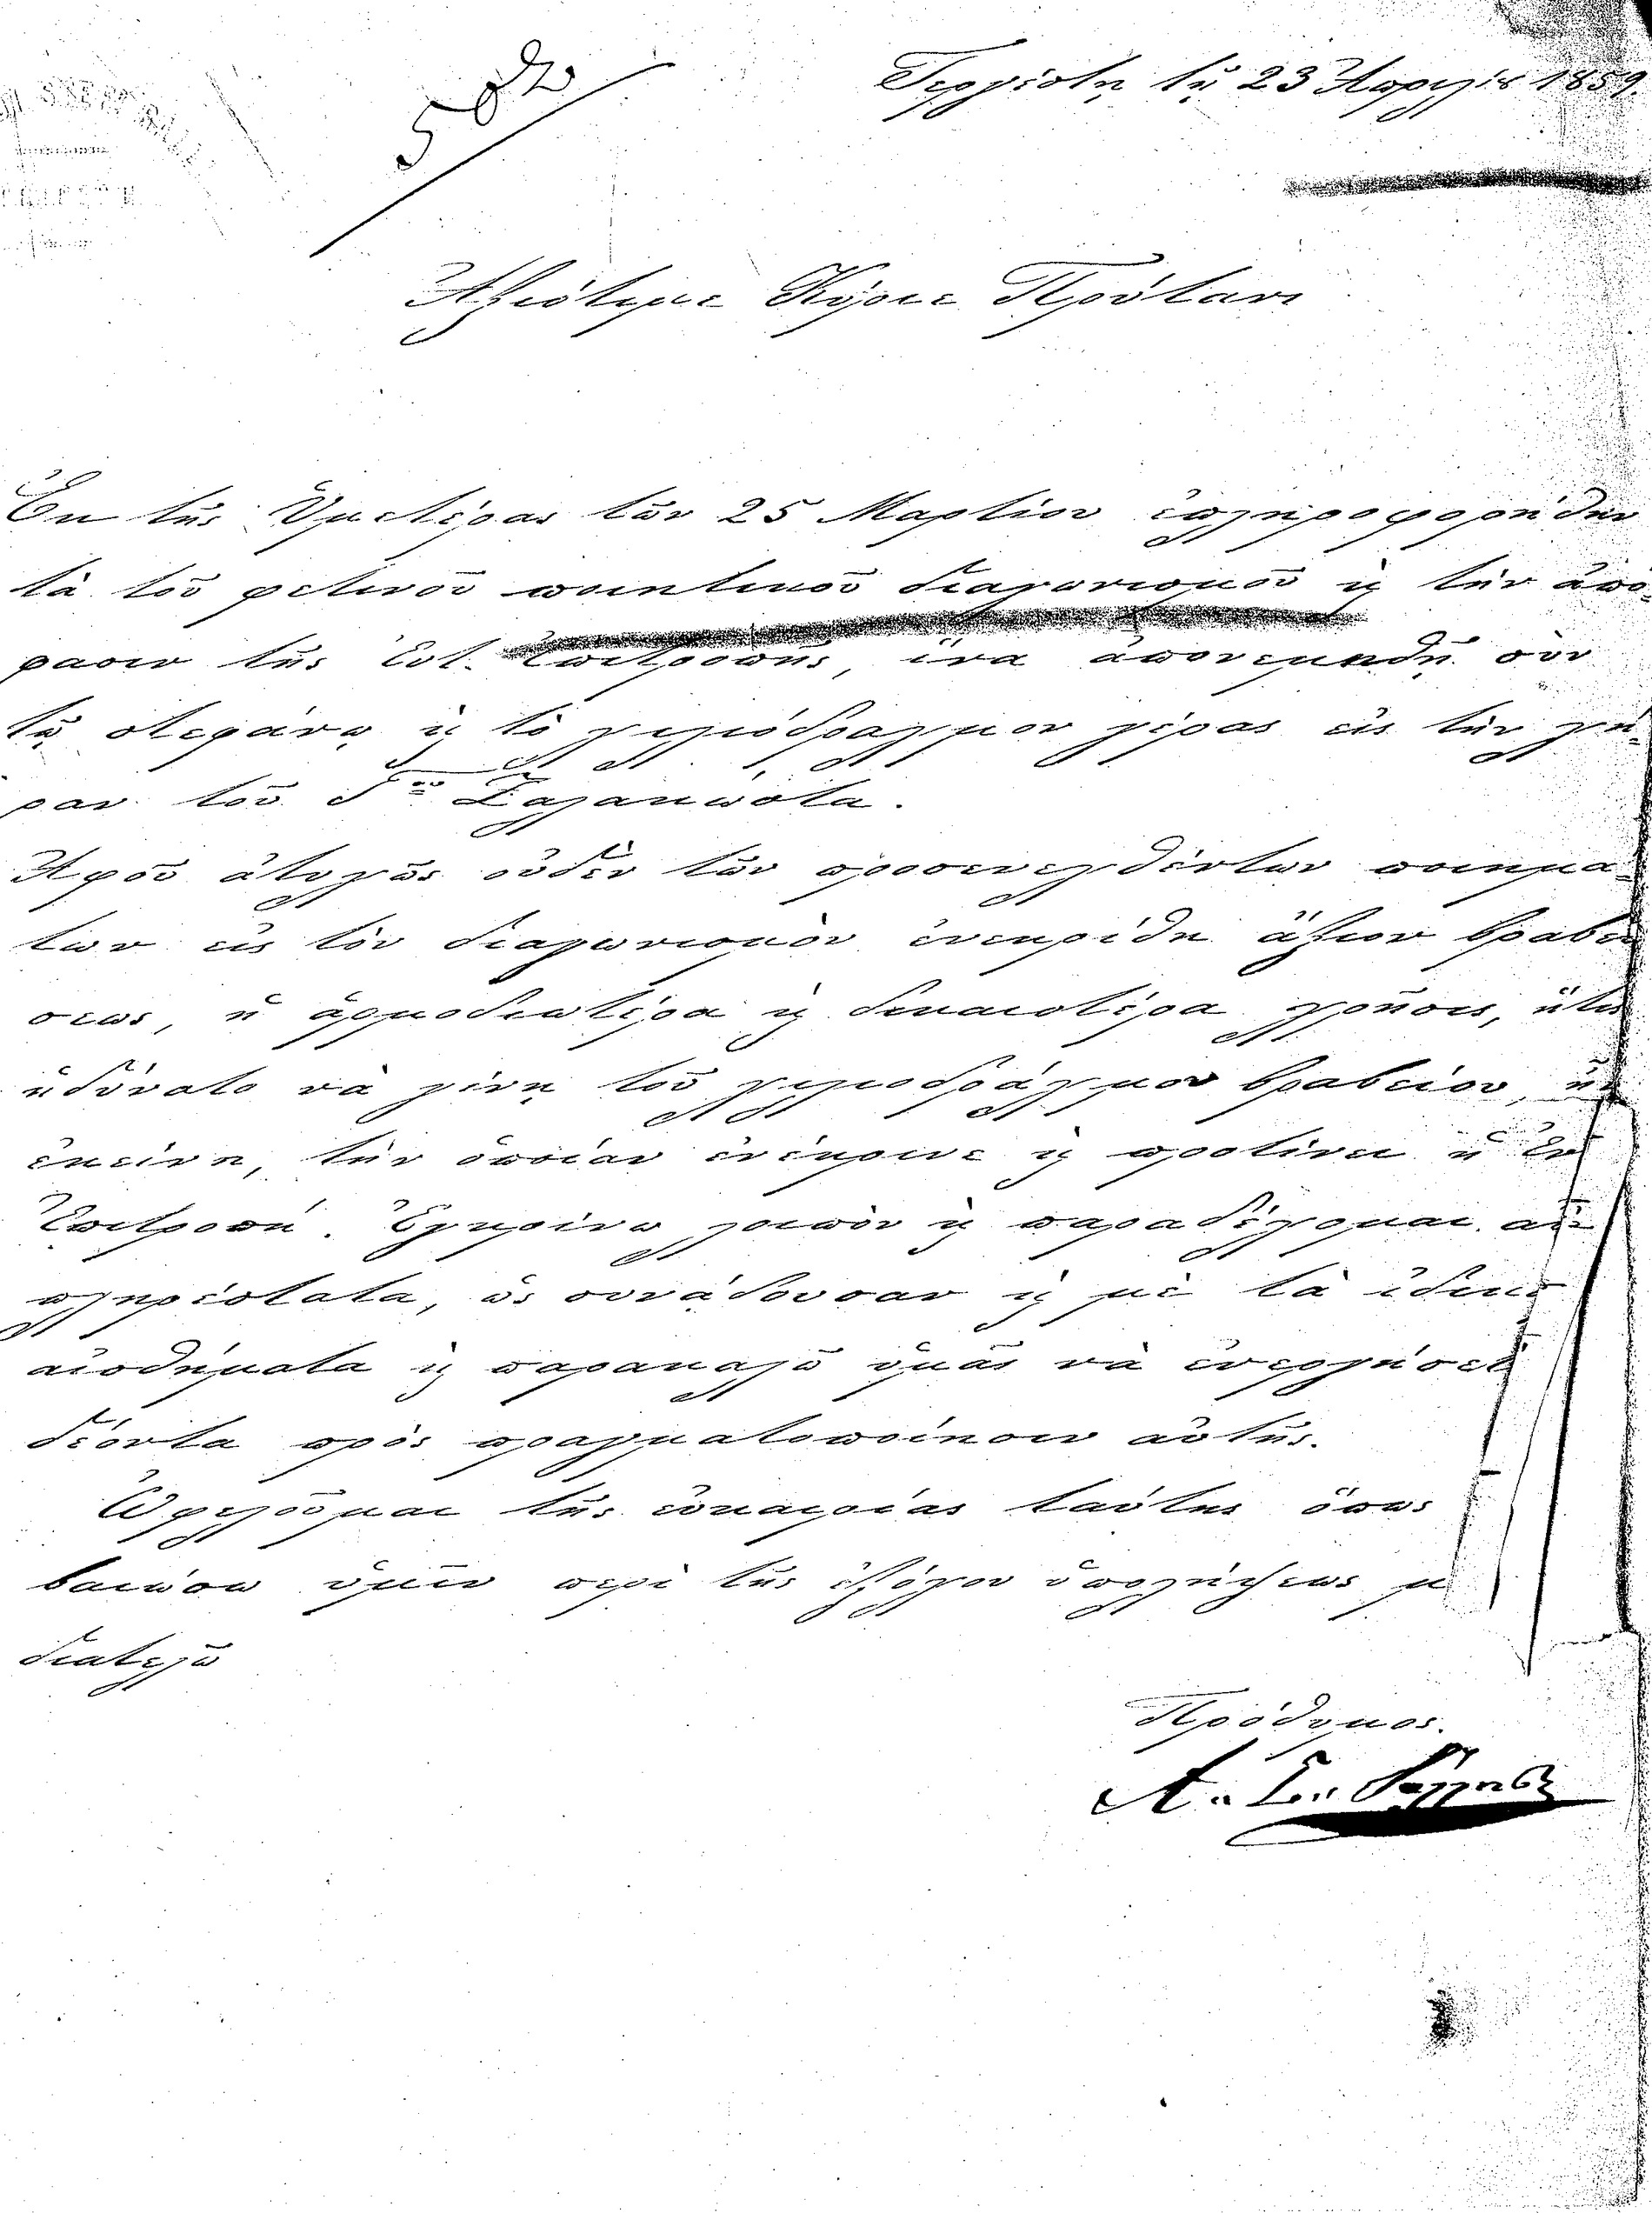 582
Τεργέστῃ τῇ 23 Ἀπριλίου 1859.
Ἀξιότιμε Κύριε Πρύτανι
Ἐκ τῆς Ὑμετέρας τῶν 25 Μαρτίου ἐπληροφορήθην
τὰ τοῦ φετινοῦ ποιητικοῦ διαγωνισμοῦ ϗ τὴν ἀπό-
φασιν τῆς Ἐντ. Ἐπιτροπῆς, ἵνα ἀπονεμηθῇ σὺν
τῷ στεφάνῳ ϗ τὸ χιλιόδραχμον γέρας εἰς τὴν χή-
ραν τοῦ Γ. Ζαλακώστα.
Ἀφοῦ ἀτυχῶς οὐδὲν τῶν προσενεχθέντων ποιημά-
των εἰς τὸν διαγωνισμὸν ἐνεκρίθη ἄξιον βραβεύ
σεως, ἡ ἁρμοδιωτέρα ϗ δικαιοτέρα χρῆσις, ἥτις
ἠδύνατο νὰ γίνῃ τοῦ χιλιοδράχμου βραβείου, ἦν
ἐκείνη, τὴν ὁποίαν ἐνέκρινε ϗ προτείνει ἡ Ἐν
Ἐπιτροπή. Ἐγκρίνω λοιπὸν ϗ παραδέχομαι αὐ
πληρέστατα, ὡς συνᾴδουσαν ϗ μὲ τὰ ἰδικά
αἰσθήματα ϗ παρακαλῶ ὑμᾶς νὰ ἐνεργήσετ
δέοντα πρὸς πραγματοποίησιν αὐτῆς.
Ὠφελοῦμαι τῆς εὐκαιρίας ταύτης ὅπως
βαιώσω ὑμῖν περὶ τῆς ἐξόχου ὑπολήψεως μ
διατελῶ
Πρόθυμος.
Α. Σ. Ῥάλλης